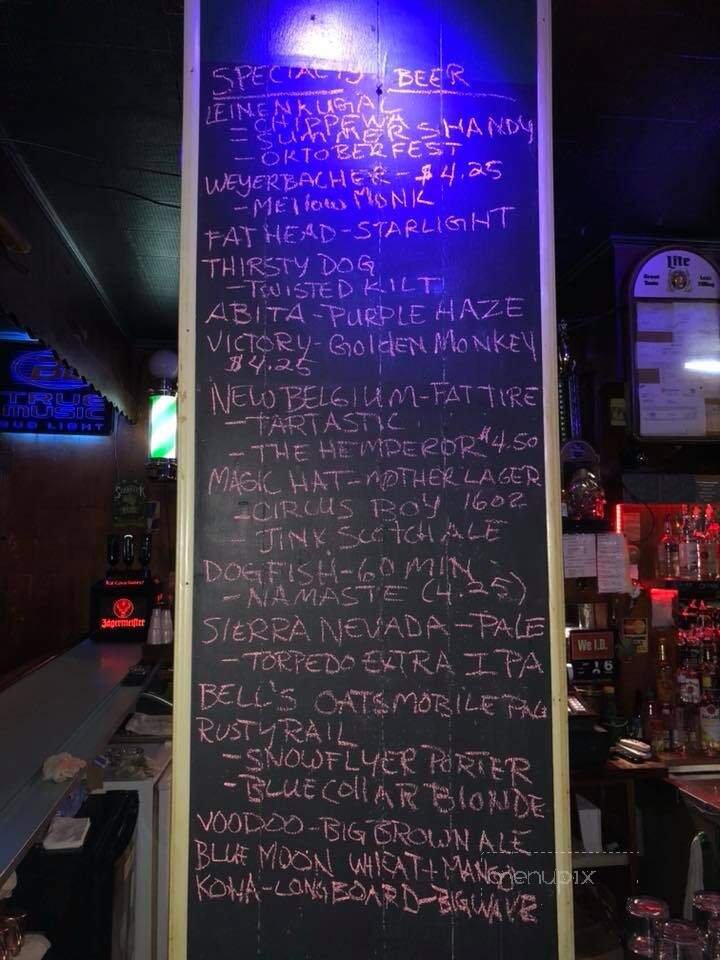 SPECIALTY BEER
LEINENKUGAL
- CHIPPEWA
- SUMMER SHANDY
- OKTOBERFEST
WEYERBACHER - $4.25
- MELLOW MONK
FATHEAD - STARLIGHT
THIRSTY DOG
- TWISTED KILT
ABITA - PURPLE HAZE
VICTORY - GOLDEN MONKEY
$4.25
NEW BELGIUM - FAT TIRE
- TARTASTIC
- THE HEMPEROR $4.50
MAGIC HAT - MOTHER LAGER
- CIRCUS BOY 16OZ
- JINX SCOTCH ALE
DOGFISH - 60 MIN
- NAMASTE (4.25)
SIERRA NEVADA - PALE
- TORPEDO EXTRA IPA
BELL'S OATSMOBILE PALE
RUSTY RAIL
- SNOWFLYER PORTER
- BLUE COLLAR BLONDE
VOODOO - BIG BROWN ALE
BLUE MOON WHEAT + MANGO
KONA - LONGBOARD - BIG WAVE
menupix
TRUE
MUSIC
BUD LIGHT
Jägermeister
Lite
Great Taste
Less Filling
We I.D.